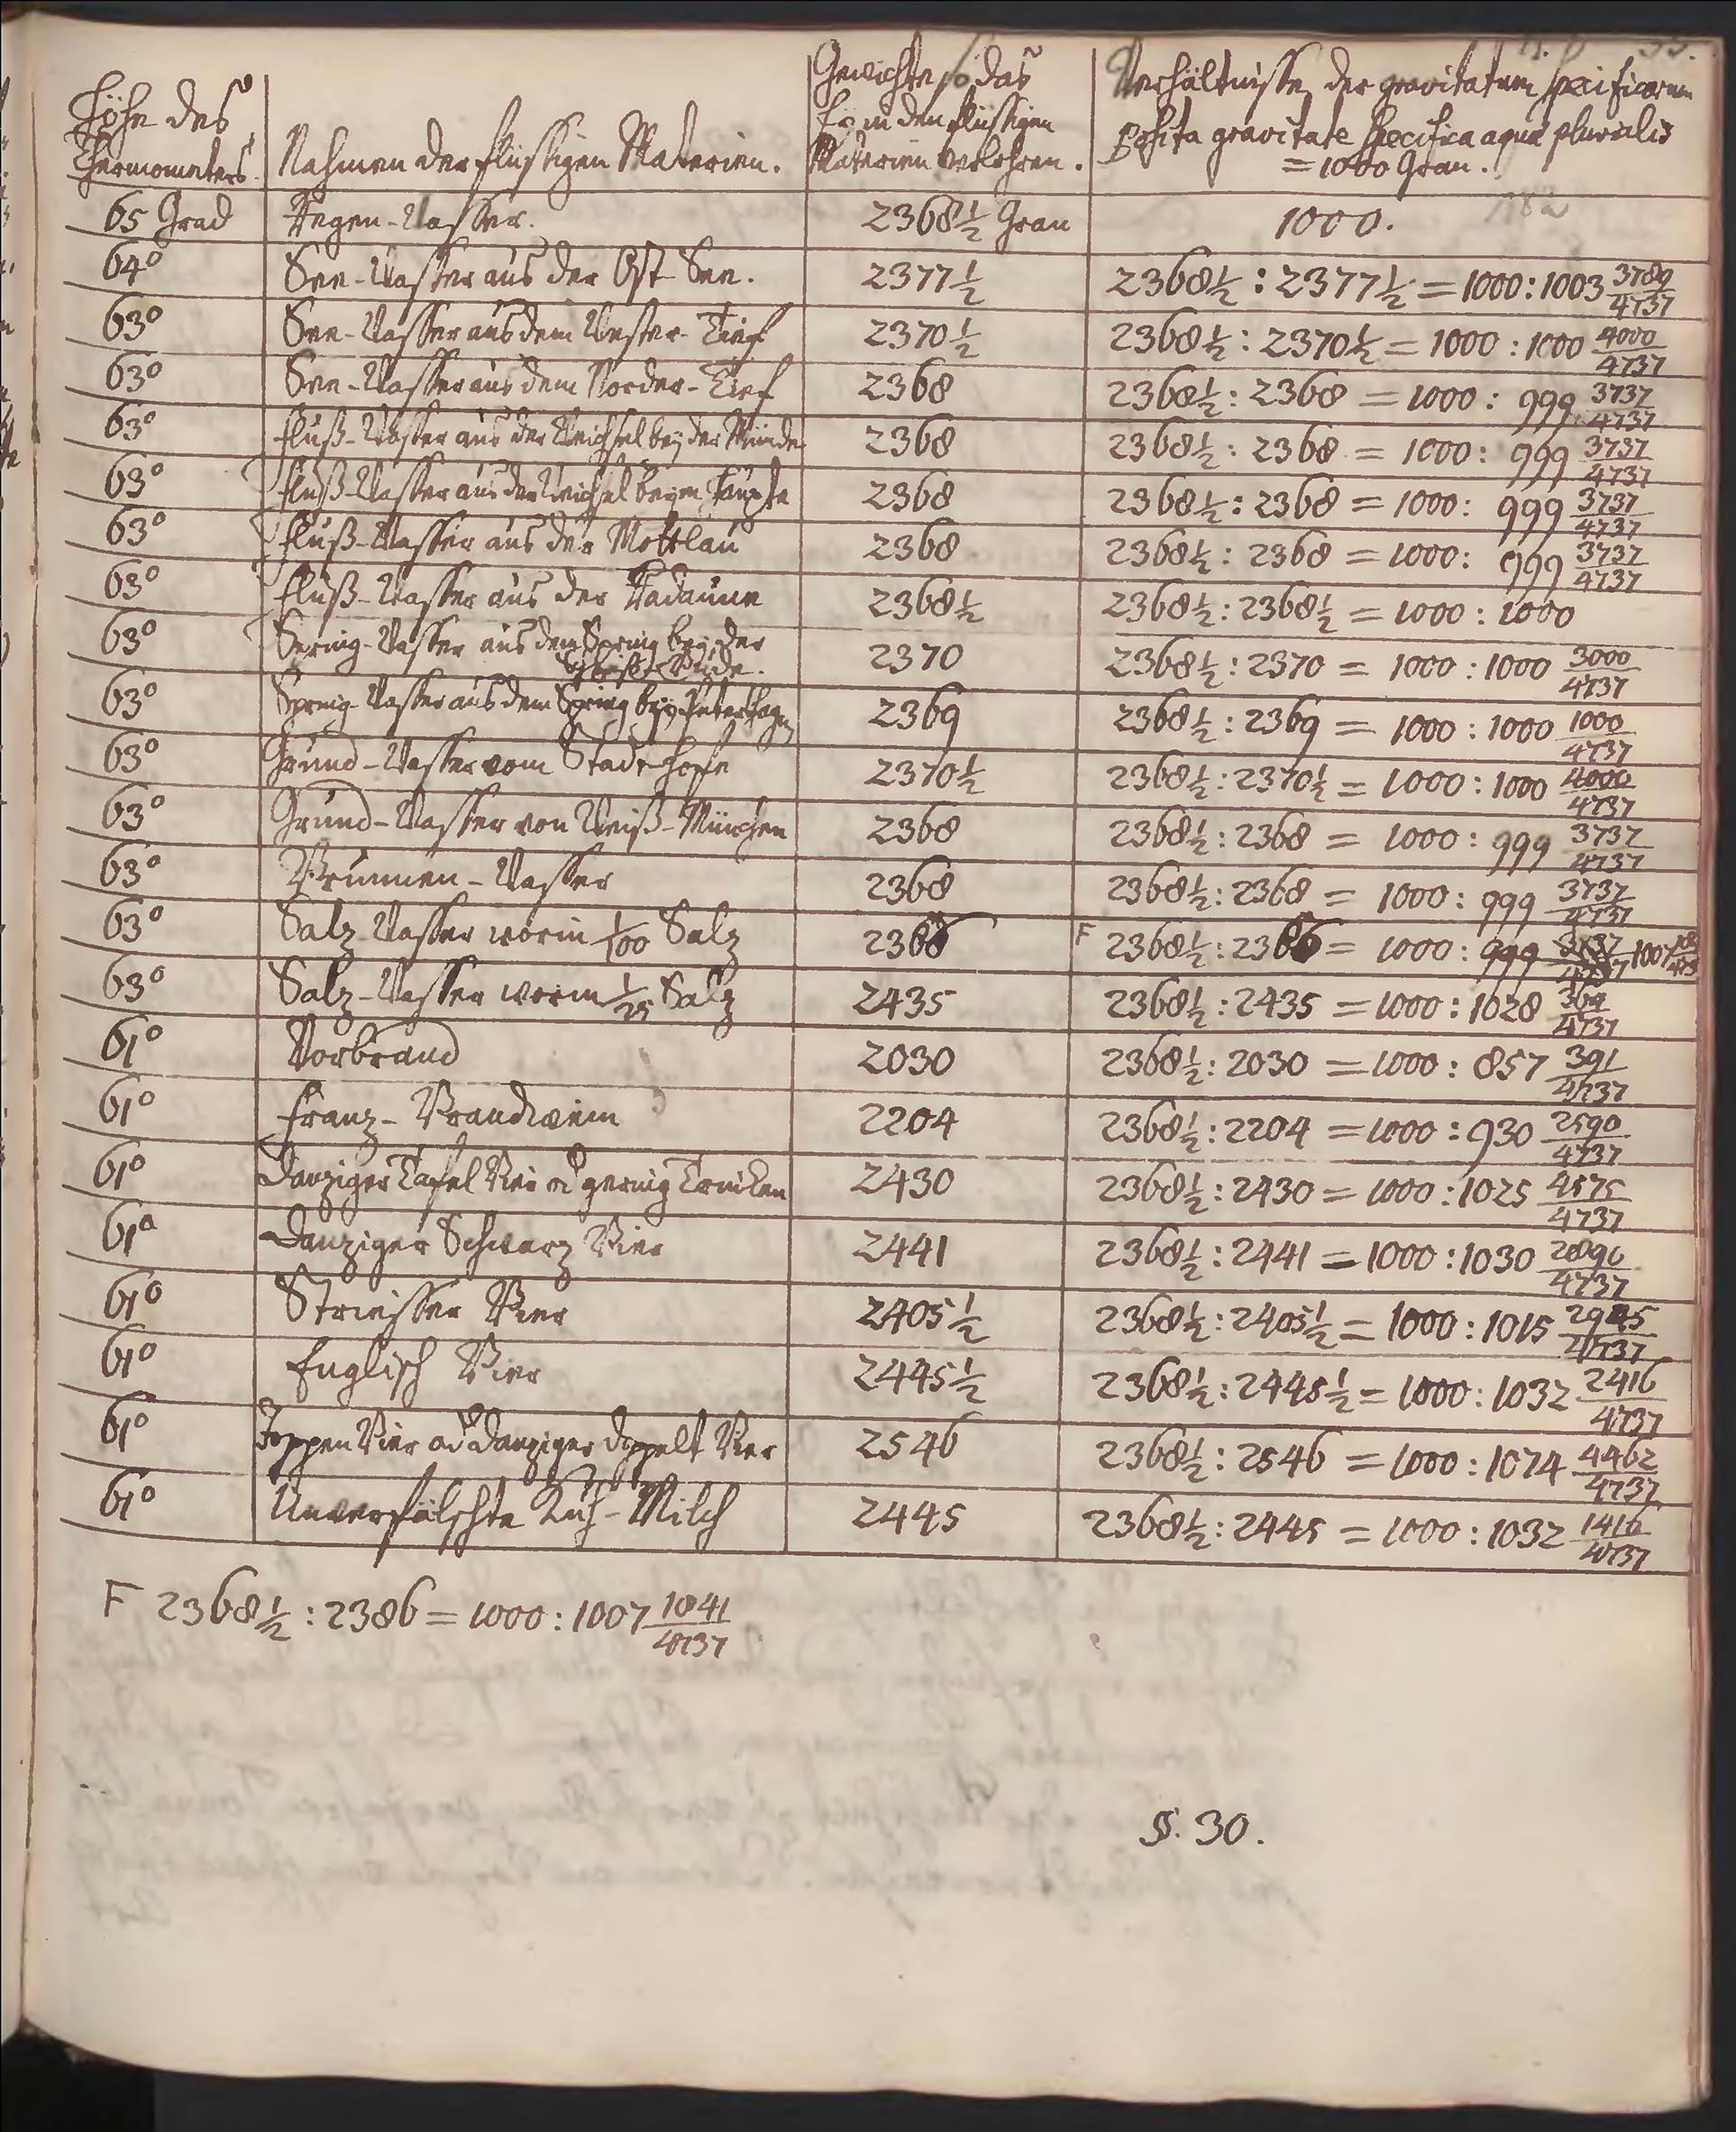 Höhe des
Thermometers.
Nahmen der flüssigen Materien.
Gewichte so das
Ey in den flüssigen
Materien verlohren.
Verhältnisse der gravitatum specificarum
posita gravitate specifica aquæ pluvialis
= 1000 Gran.
65 Grad Regen-Wasser. 2368½ Gran 1000.
64° See-Wasser aus der Ost-See. 2377½ 2368½ : 2377½ = 1000 : 1003 3789/4737
63° See-Wasser aus dem Wester-Tief 2370½ 2368½ : 2370½ = 1000 : 1000 4000/4737
63° See-Wasser aus dem Norder-Tief 2368 2368½ : 2368 = 1000 : 999 3737/4737
63° Fluß-Wasser aus der Weichsel bey der Münde 2368 2368½ : 2368 = 1000 : 999 3737/4737
63° Fluß-Wasser aus der Weichsel beym Haupte 2368 2368½ : 2368 = 1000 : 999 3737/4737
63° Fluß-Wasser aus der Mottlau 2368 2368½ : 2368 = 1000 : 999 3737/4737
63° Fluß-Wasser aus der Radaune 2368½ 2368½ : 2368½ = 1000 : 1000
63° Spring-Wasser aus dem Spring bey der 2370 2368½ : 2370 = 1000 : 1000 3000/4737
63° Spring-Wasser aus dem Spring bey Petershagen 2369 2368½ : 2369 = 1000 : 1000 1000/4737
63° Grund-Wasser vom Stadthofe 2370½ 2368½ : 2370½ = 1000 : 1000 4000/4737
63° Grund-Wasser von Weiß-München 2368 2368½ : 2368 = 1000 : 999 3737/4737
63° Brunnen-Wasser 2368 2368½ : 2368 = 1000 : 999 3737/4737
63° Salz-Wasser worin 1/100 Salz 2386 F 2368½ : 2386 = 1000 : 999 3737/4737 1007
63° Salz-Wasser worin 1/25 Salz 2435 2368½ : 2435 = 1000 : 1028 364/4737
61° Vorbrand 2030 2368½ : 2030 = 1000 : 857 391/4737
61° Franz-Brandwein 2204 2368½ : 2204 = 1000 : 930 2590/4737
61° Danziger Tafel Bier od gering Trincken 2430 2368½ : 2430 = 1000 : 1025 4575/4737
61° Danziger Schwarz Bier 2441 2368½ : 2441 = 1000 : 1030 2890/4737
61° Striesser Bier 2405½ 2368½ : 2405½ = 1000 : 1015 2945/4737
61° Englisch Bier 2445½ 2368½ : 2445½ = 1000 : 1032 2416/4737
61° Joppen Bier od Danziger doppelt Bier 2546 2368½ : 2546 = 1000 : 1074 4462/4737
61° Unverfälschte Kuh-Milch 2445 2368½ : 2445 = 1000 : 1032 1416/4737
F 2368½ : 2386 = 1000 : 1007 1841/4737
§. 30.